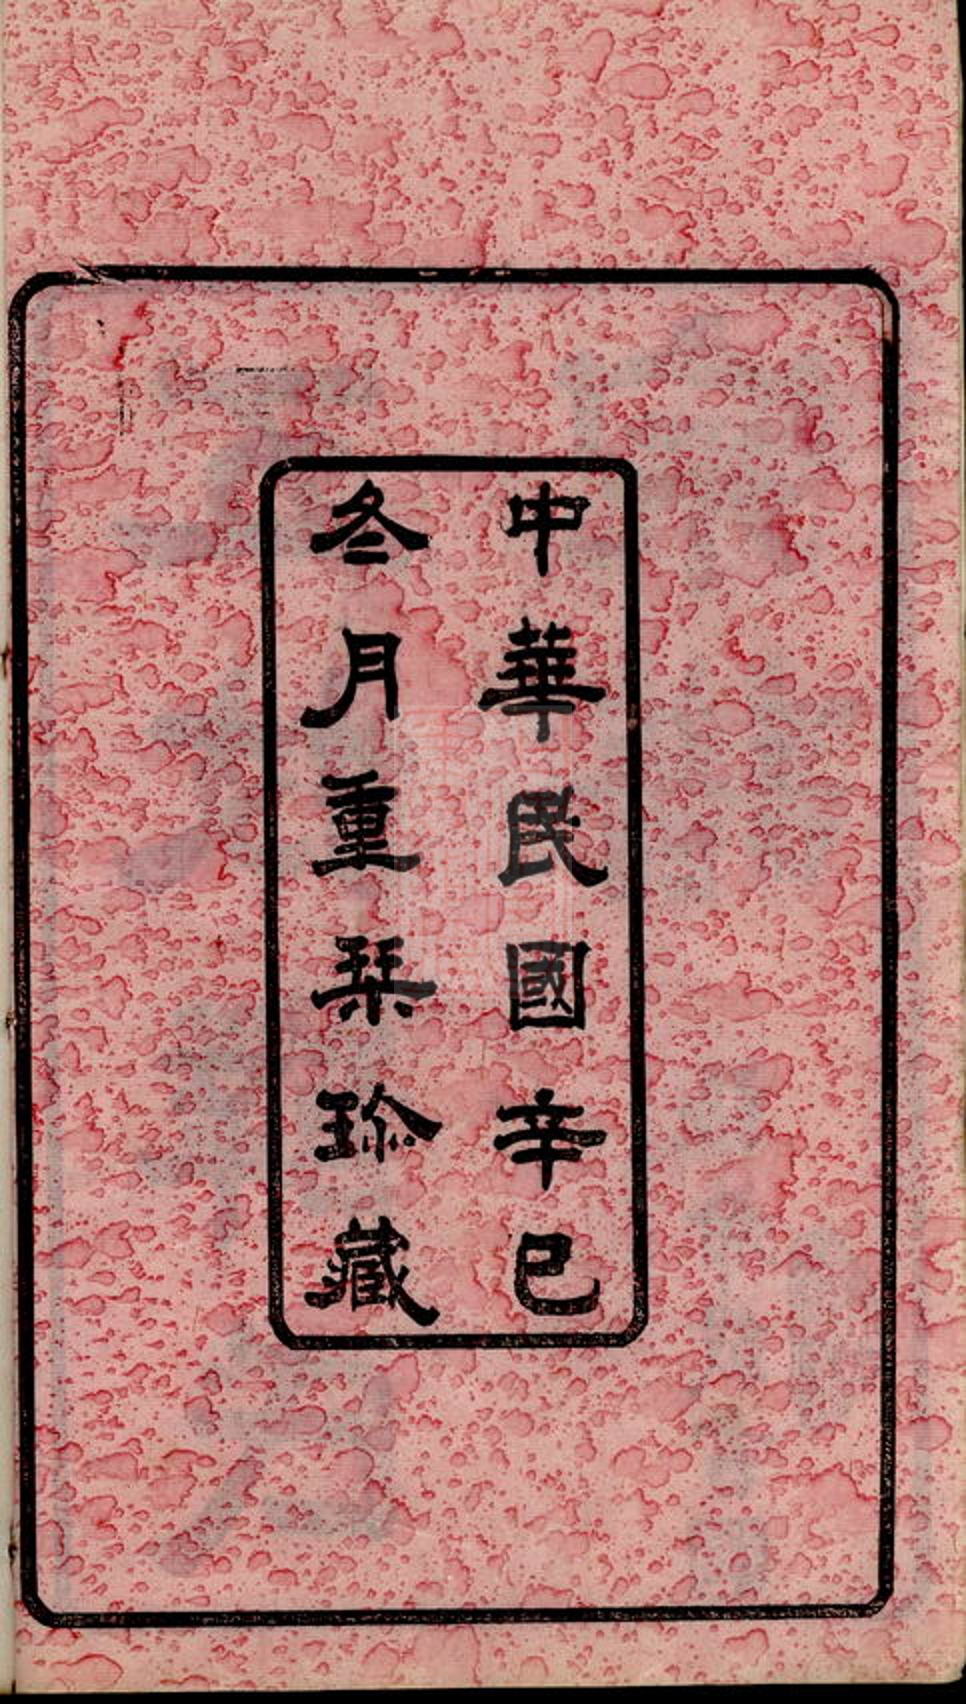 中華民國辛巳
冬月重栞珍藏